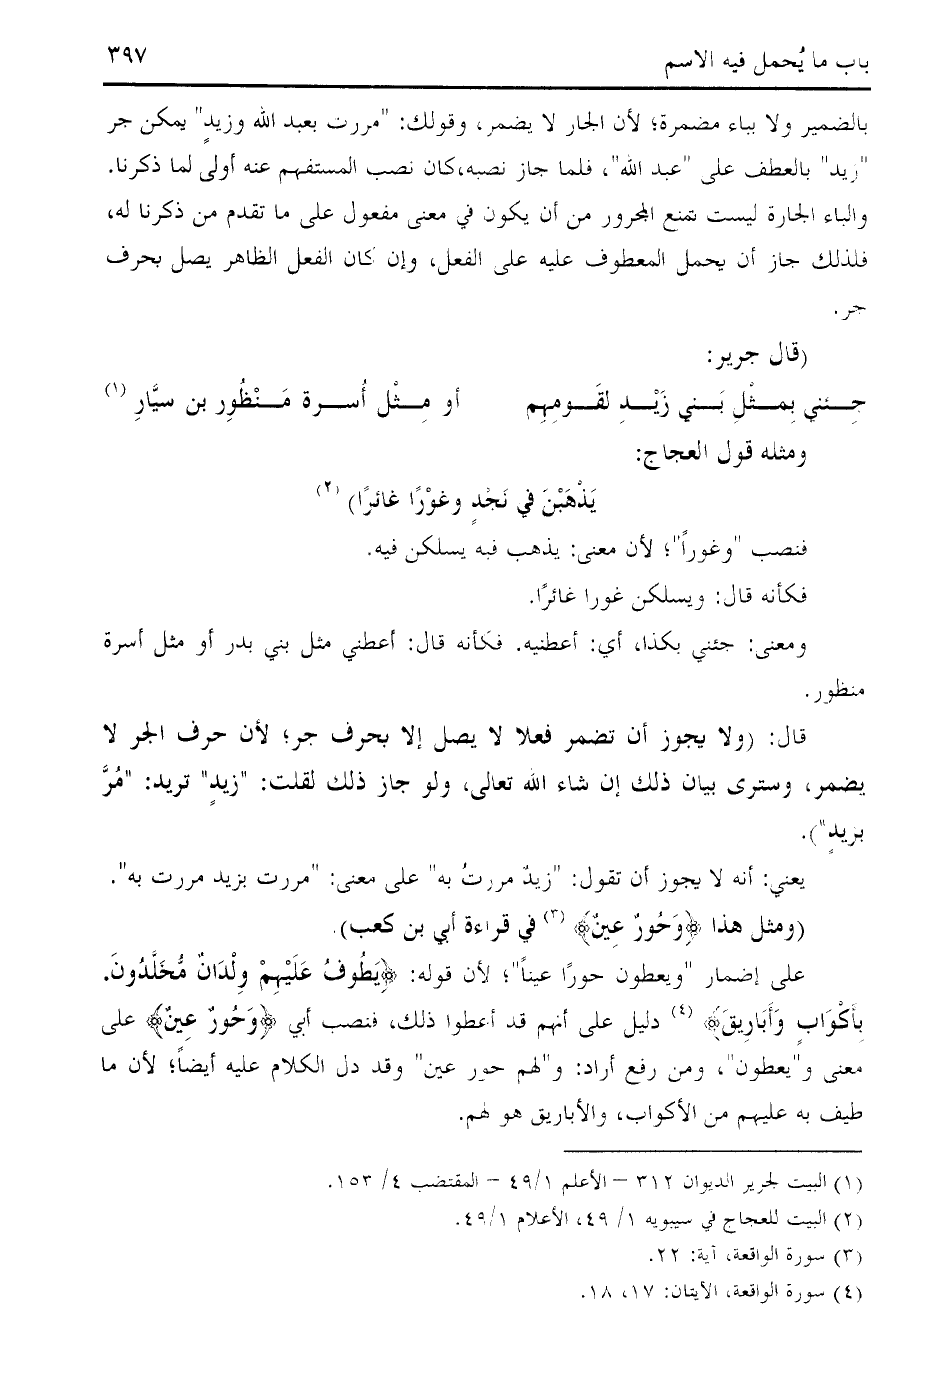 باب ما يُحمل فيه الاسم ٣٩٧
بالضمير ولا بباء مضمرة؛ لأن الجار لا يضمر، وقولك: "مررت بعبد الله وزيدٍ" يمكن جر
"زيد" بالعطف على "عبد الله"، فلما جاز نصبه،كان نصب المستفهم عنه أولى لما ذكرنا.
والباء الجارة ليست تمنع المجرور من أن يكون في معنى مفعول على ما تقدم من ذكرنا له،
فلذلك جاز أن يحمل المعطوف عليه على الفعل، وإن كان الفعل الظاهر يصل بحرف
جر.
(قال جرير:
جِئني بِمثْلِ بَني زَيْدِ لقَومِهِم أو مِثْل أُسرة مَنْظُورِ بن سيَّارِ (١)
ومثله قول العجاج:
يَذْهَبْنَ في نَجْدٍ وغوْرًا غائرًا) (٢)
فنصب "وغوراً"؛ لأن معنى: يذهب فيه يسلكن فيه.
فكأنه قال: ويسلكن غورا غائرًا.
ومعنى: جئني بكذا، أي: أعطنيه. فكأنه قال: أعطني مثل بني بدر أو مثل أسرة
منظور.
قال: (ولا يجوز أن تضمر فعلا لا يصل إلا بحرف جر؛ لأن حرف الجر لا
يضمر، وسترى بيان ذلك إن شاء الله تعالى، ولو جاز ذلك لقلت: "زيدٍ" تريد: "مُرَّ
بزيدٍ").
يعني: أنه لا يجوز أن تقول: "زيدٌ مررتُ به" على معنى: "مررت بزيد مررت به".
(ومثل هذا ﴿وَحُورٌ عِينٌ﴾ (٣) في قراءة أبي بن كعب).
على إضمار "ويعطون حورًا عيناً"؛ لأن قوله: ﴿يَطُوفُ عَلَيْهِمْ وِلْدَانٌ مُّخَلَّدُونَ.
بِأَكْوَابٍ وَأَبَارِيقَ﴾ (٤) دليل على أنهم قد أعطوا ذلك، فنصب أبي ﴿وَحُورٌ عِينٌ﴾ على
معنى و"يعطون"، ومن رفع أراد: و"لهم حور عين" وقد دل الكلام عليه أيضاً؛ لأن ما
طيف به عليهم من الأكواب، والأباريق هو لهم.
(١) البيت لجرير الديوان ٣١٢ – الأعلم ٤٩/١ – المقتضب ٤/ ١٥٣.
(٢) البيت للعجاج في سيبويه ١/ ٤٩، الأعلام ٤٩/١.
(٣) سورة الواقعة، آية: ٢٢.
(٤) سورة الواقعة، الآيتان: ١٧، ١٨.